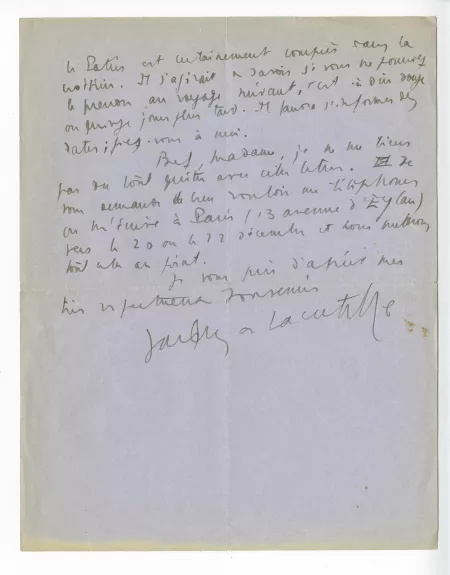 le Patris est certainement compris dans la
. Il s'agirait de savoir si vous ne pouvez
le prendre au voyage suivant, c'est à dire douze
ou quinze jours plus tard. Il faudra s'informer des
dates; fiez-vous à moi.
Bref, Madame, je ne me tiens
pas du tout quitte avec cette lettre. Et je
vous demande de bien vouloir me téléphoner
ou m'écrire à Paris (13 avenue d'Eylau)
vers le 20 ou le 22 décembre et nous mettrons
tout cela au point.
Je vous prie d'agréer mes
très respectueux souvenirs
Jacques de Lacretelle